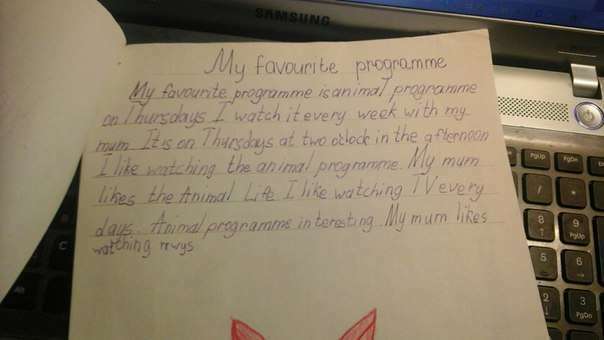 SAMSUNG
My favourite programme
My favourite programme is animal programme
on Thursdays I watch it every week with my
mum It is on Thursdays at two o'clock in the afternoon
I like watching the animal programme. My mum
likes the Animal Life I like watching TV every
days. Animal programme interesting. My mum likes
watching
PgUp
PgDn
/
*
8
9
PgUp
5
6
2
3
PgDn
C